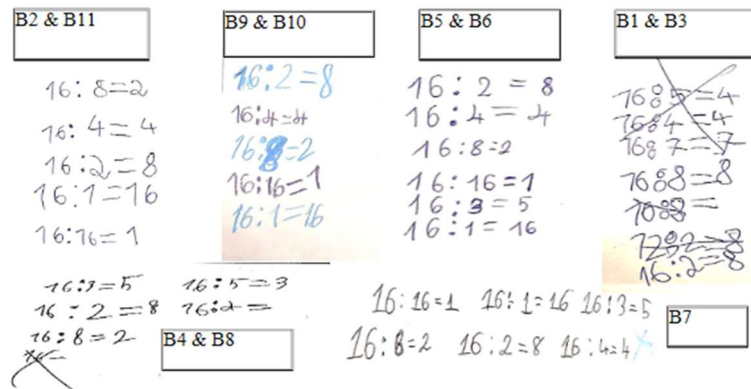 B2 & B11
16:8=2
16:4=4
16:2=8
16:1=16
16:16=1
B9 & B10
16:2=8
16:4=4
16:8=2
16:16=1
16:1=16
B5 & B6
16:2=8
16:4=4
16:8=2
16:16=1
16:3=5
16:1=16
B1 & B3
16:5=4
16:4=4
16:7=7
16:8=8
16:8=
12:2=8
16:2=8
16:3=5 16:5=3
16:2=8 16:2=
16:8=2
16=
B4 & B8
16:16=1 16:1=16 16:3=5
16:8=2 16:2=8 16:4=4
B7